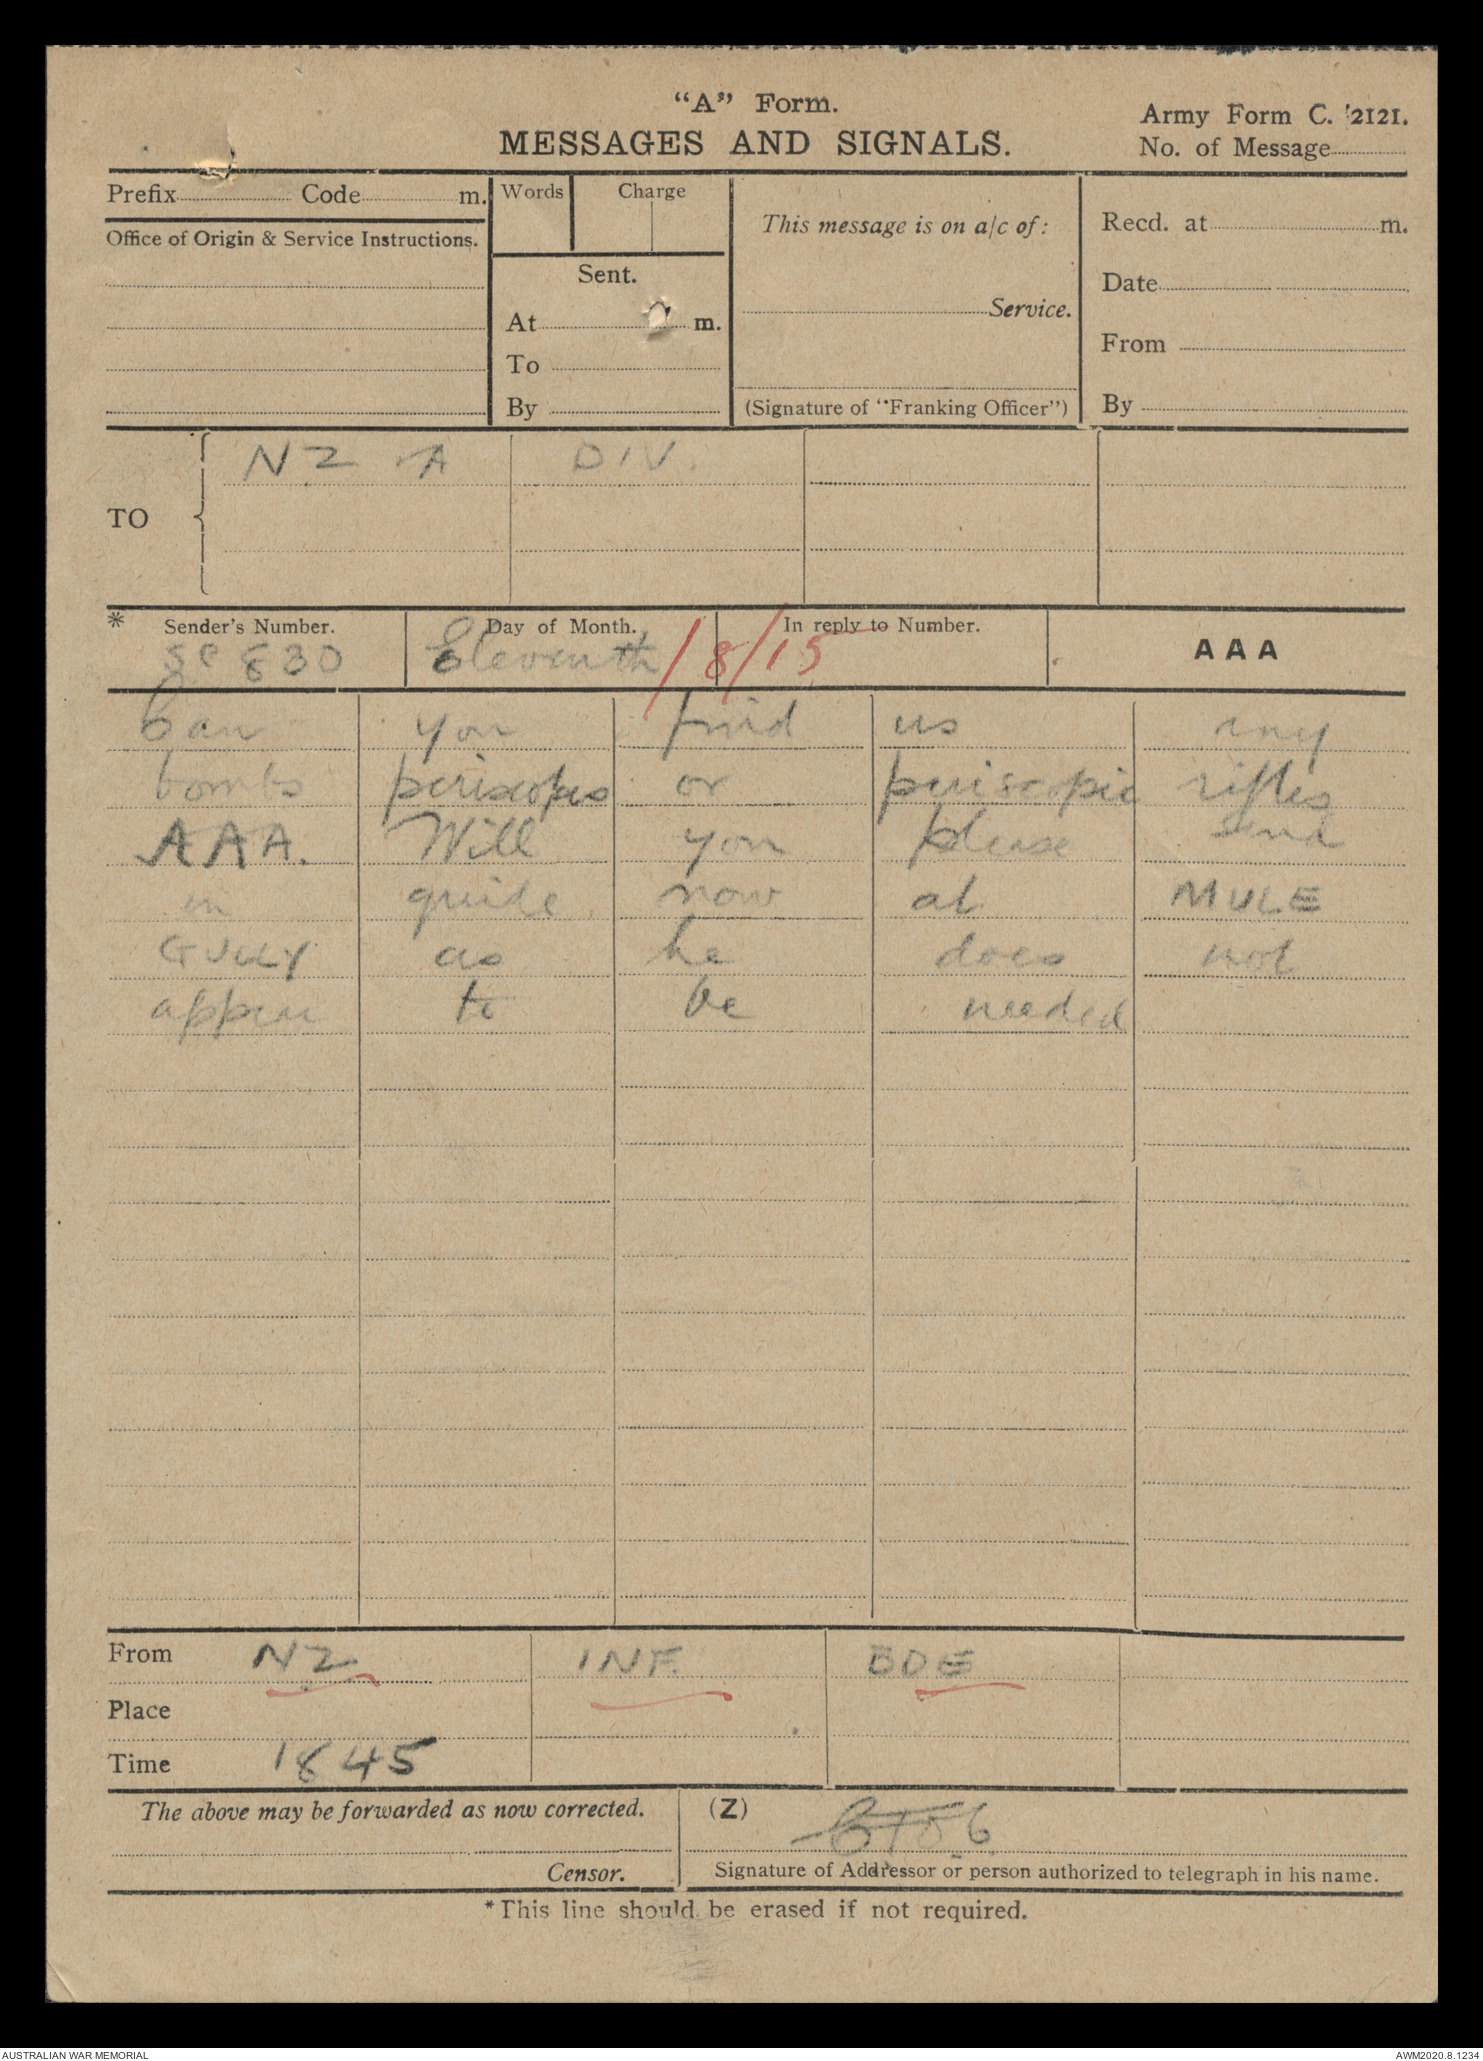 "A" Form.
Army Form C. 2121.
MESSAGES AND SIGNALS.
No. of Message
Prefix Code m.
Words Charge
This message is on a/c of:
Recd. at m.
Office of Origin & Service Instructions.
Sent.
Date
Service.
At m.
From
To
By
(Signature of "Franking Officer")
By
TO
NZ A DIV.
* Sender's Number. Day of Month. In reply to Number.
830 Eleventh /8/15 AAA
Can you find us any
bombs periscopes or periscopic rifles
AAA. Will you please send
in guide now at MULE
GULLY as he does not
appear to be needed
From NZ INF. BDE
Place
Time 1845
The above may be forwarded as now corrected. (Z)
Censor. Signature of Addressor or person authorized to telegraph in his name.
*This line should be erased if not required.
AUSTRALIAN WAR MEMORIAL AWM2020.8.1234